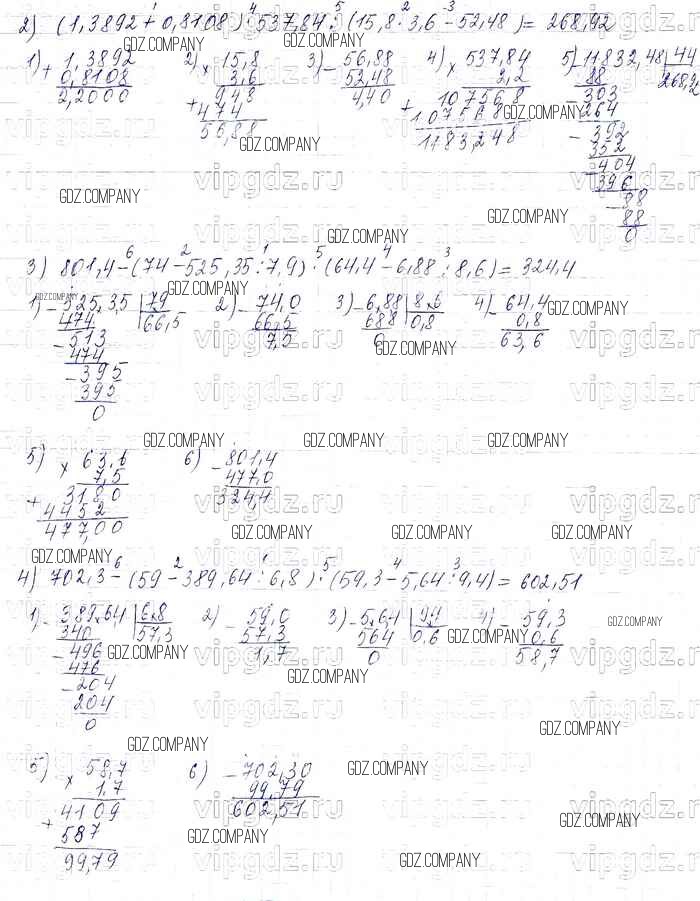 2) (1,3892 + 0,8108) · 537,84 : (15,8 · 3,6 - 52,48) = 268,92
1) + 1,3892
0,8108
2,2000
2) × 15,8
3,6
+ 948
474
56,88
3) - 56,88
52,48
4,40
4) × 537,84
2,2
+ 107568
107568
1183,248
5) - 11832,48 | 44
88
268,92
- 303
264
- 392
352
- 404
396
- 88
88
0
3) 801,4 - (74 - 525,35 : 7,9) · (64,4 - 6,88 : 8,6) = 324,4
1) - 525,35 | 79
474
66,5
- 513
474
- 395
395
0
2) - 74,0
66,5
7,5
3) - 6,88 | 8,6
688
0,8
0
4) - 64,4
0,8
63,6
5) × 63,6
7,5
+ 3180
4452
477,00
6) - 801,4
477,0
324,4
4) 702,3 - (59 - 389,64 : 6,8) · (59,3 - 5,64 : 9,4) = 602,51
1) - 389,64 | 6,8
340
57,3
- 496
476
- 204
204
0
2) - 59,0
57,3
1,7
3) - 5,64 | 9,4
564
0,6
0
4) - 59,3
0,6
58,7
5) × 58,7
1,7
+ 4109
587
99,79
6) - 702,30
99,79
602,51
GDZ.COMPANY
vipgdz.ru